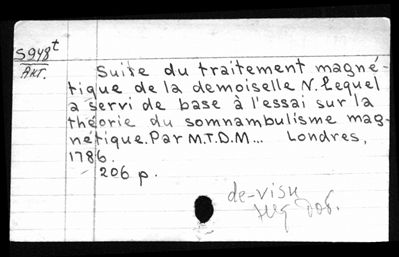 S948t
Ант.
Suite du traitement magné-
tique de la demoiselle N. Lequel
a servi de base à l'essai sur la
théorie du somnambulisme mag-
nétique. Par M.T.D.M... Londres,
1786.
206 p.
de-visu